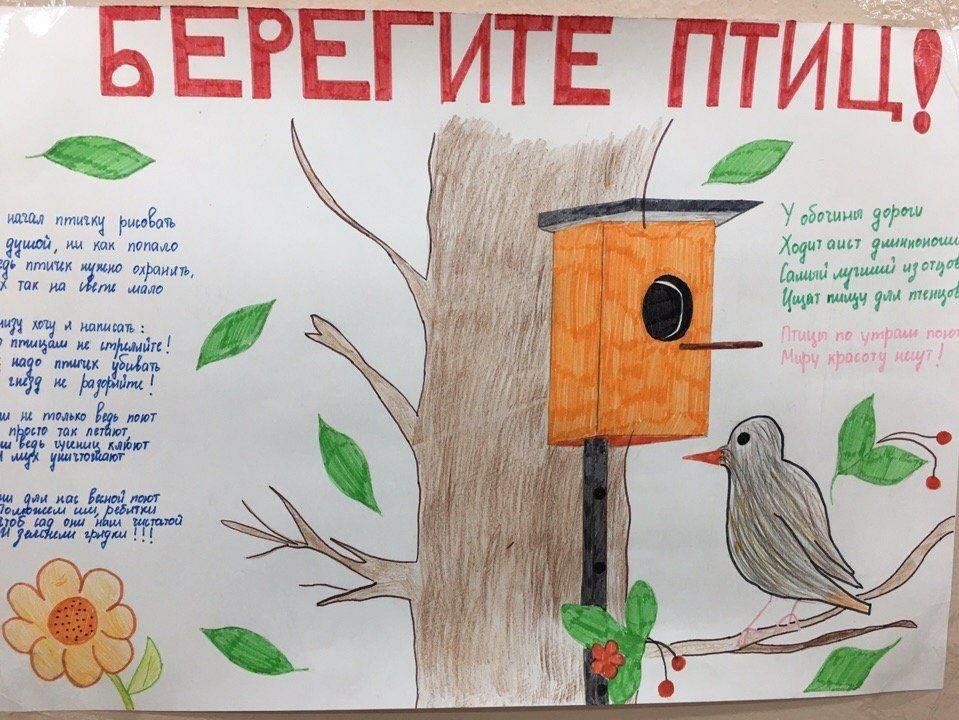 БЕРЕГИТЕ ПТИЦ!
начал птичку рисовать
душой, ни как попало
птичк нужно охранять,
так на свете мало
хочу я написать:
птицам не стреляйте!
надо птичк убивать
гнёзд не разоряйте!
не только ведь поют
просто так летают
ведь гусениц клюют
мух уничтожают
для нас весной поют
Поможем им, ребятки
чтоб сад они наш чистатой
И зеленели грядки!!!
У обочины дороги
Ходит аист
Самый лучший из отцов
Ищат пищу для птенцов
Птицы по утрам поют
Миру красоту несут!